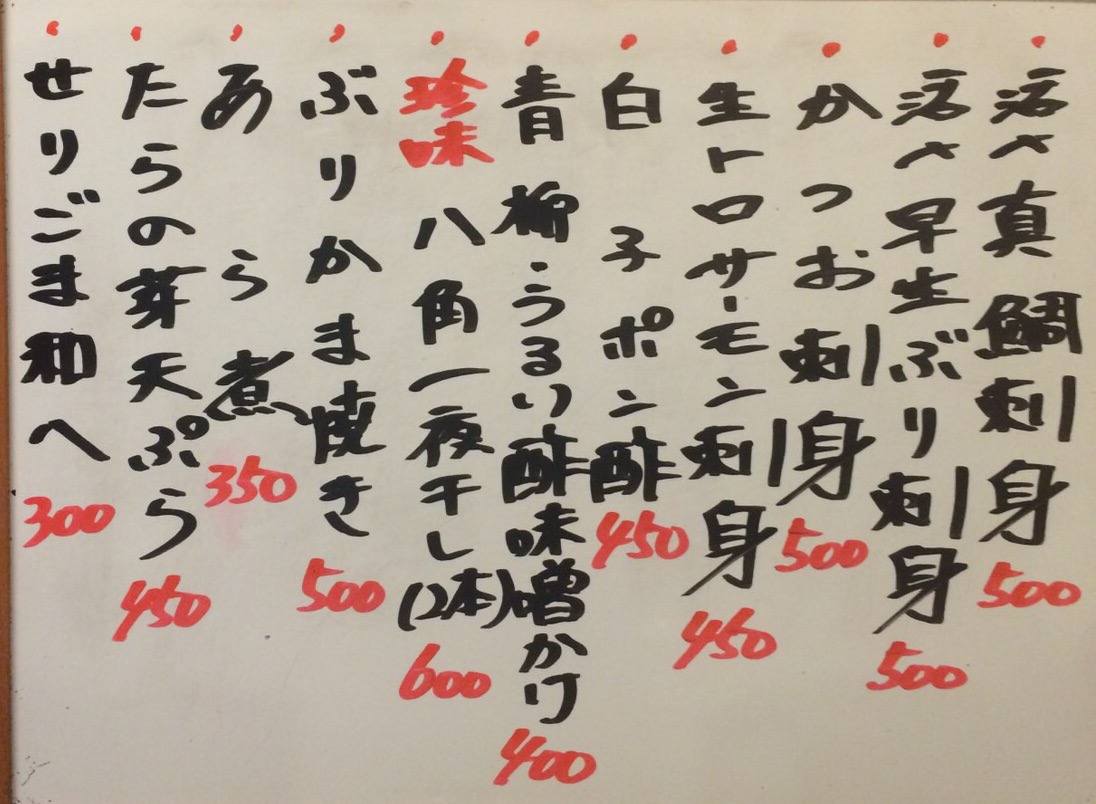 ・活〆真鯛刺身 500
・活〆早生ぶり刺身 500
・かつお刺身 500
・生トロサーモン刺身 450
・白子ポン酢 450
・青柳・うるい酢味噌かけ 400
・珍味 八角一夜干し(2本) 600
・ぶりかま焼き 500
・あら煮 350
・たらの芽天ぷら 450
・せりごま和へ 300